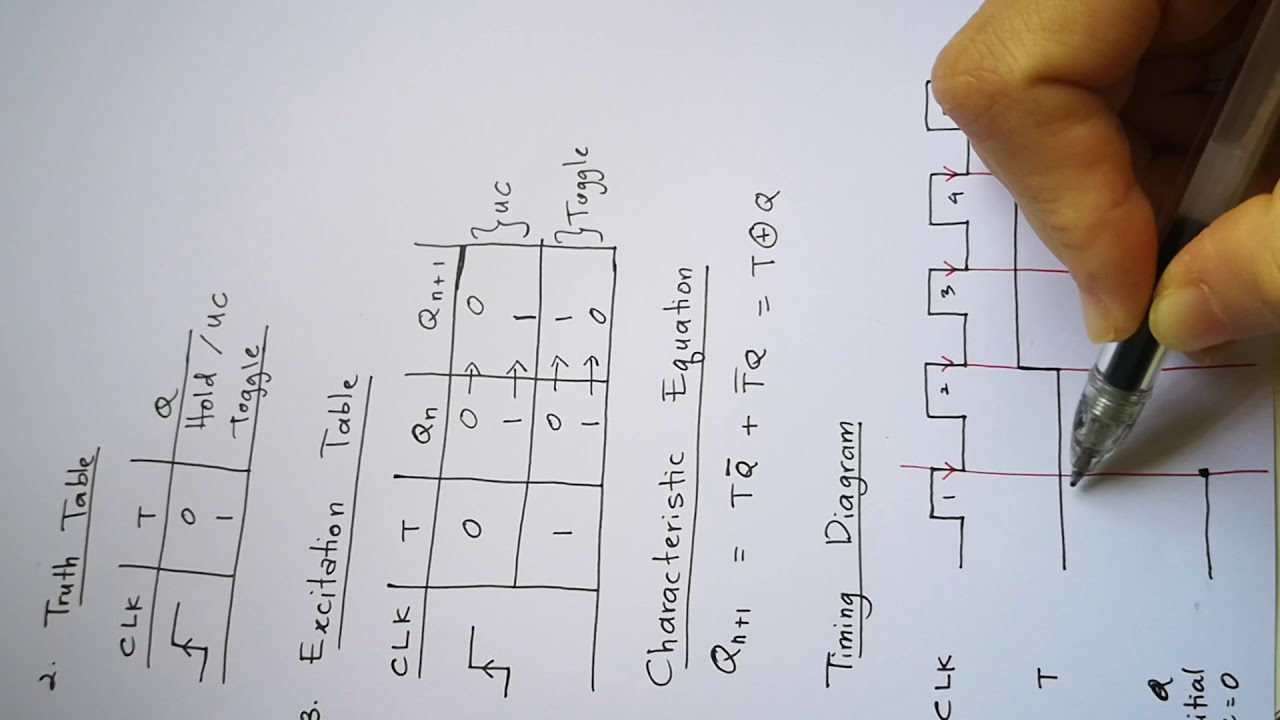 2. Truth Table
CLK T Q
0 Hold/UC
1 Toggle
3. Excitation Table
CLK T Qn Qn+1
0 0 → 0 } UC
1 → 1
1 0 → 1 } Toggle
1 → 0
Characteristic Equation
Qn+1 = TQ̅ + T̅Q = T⊕Q
Timing Diagram
CLK 1 2 3 4
T
Q